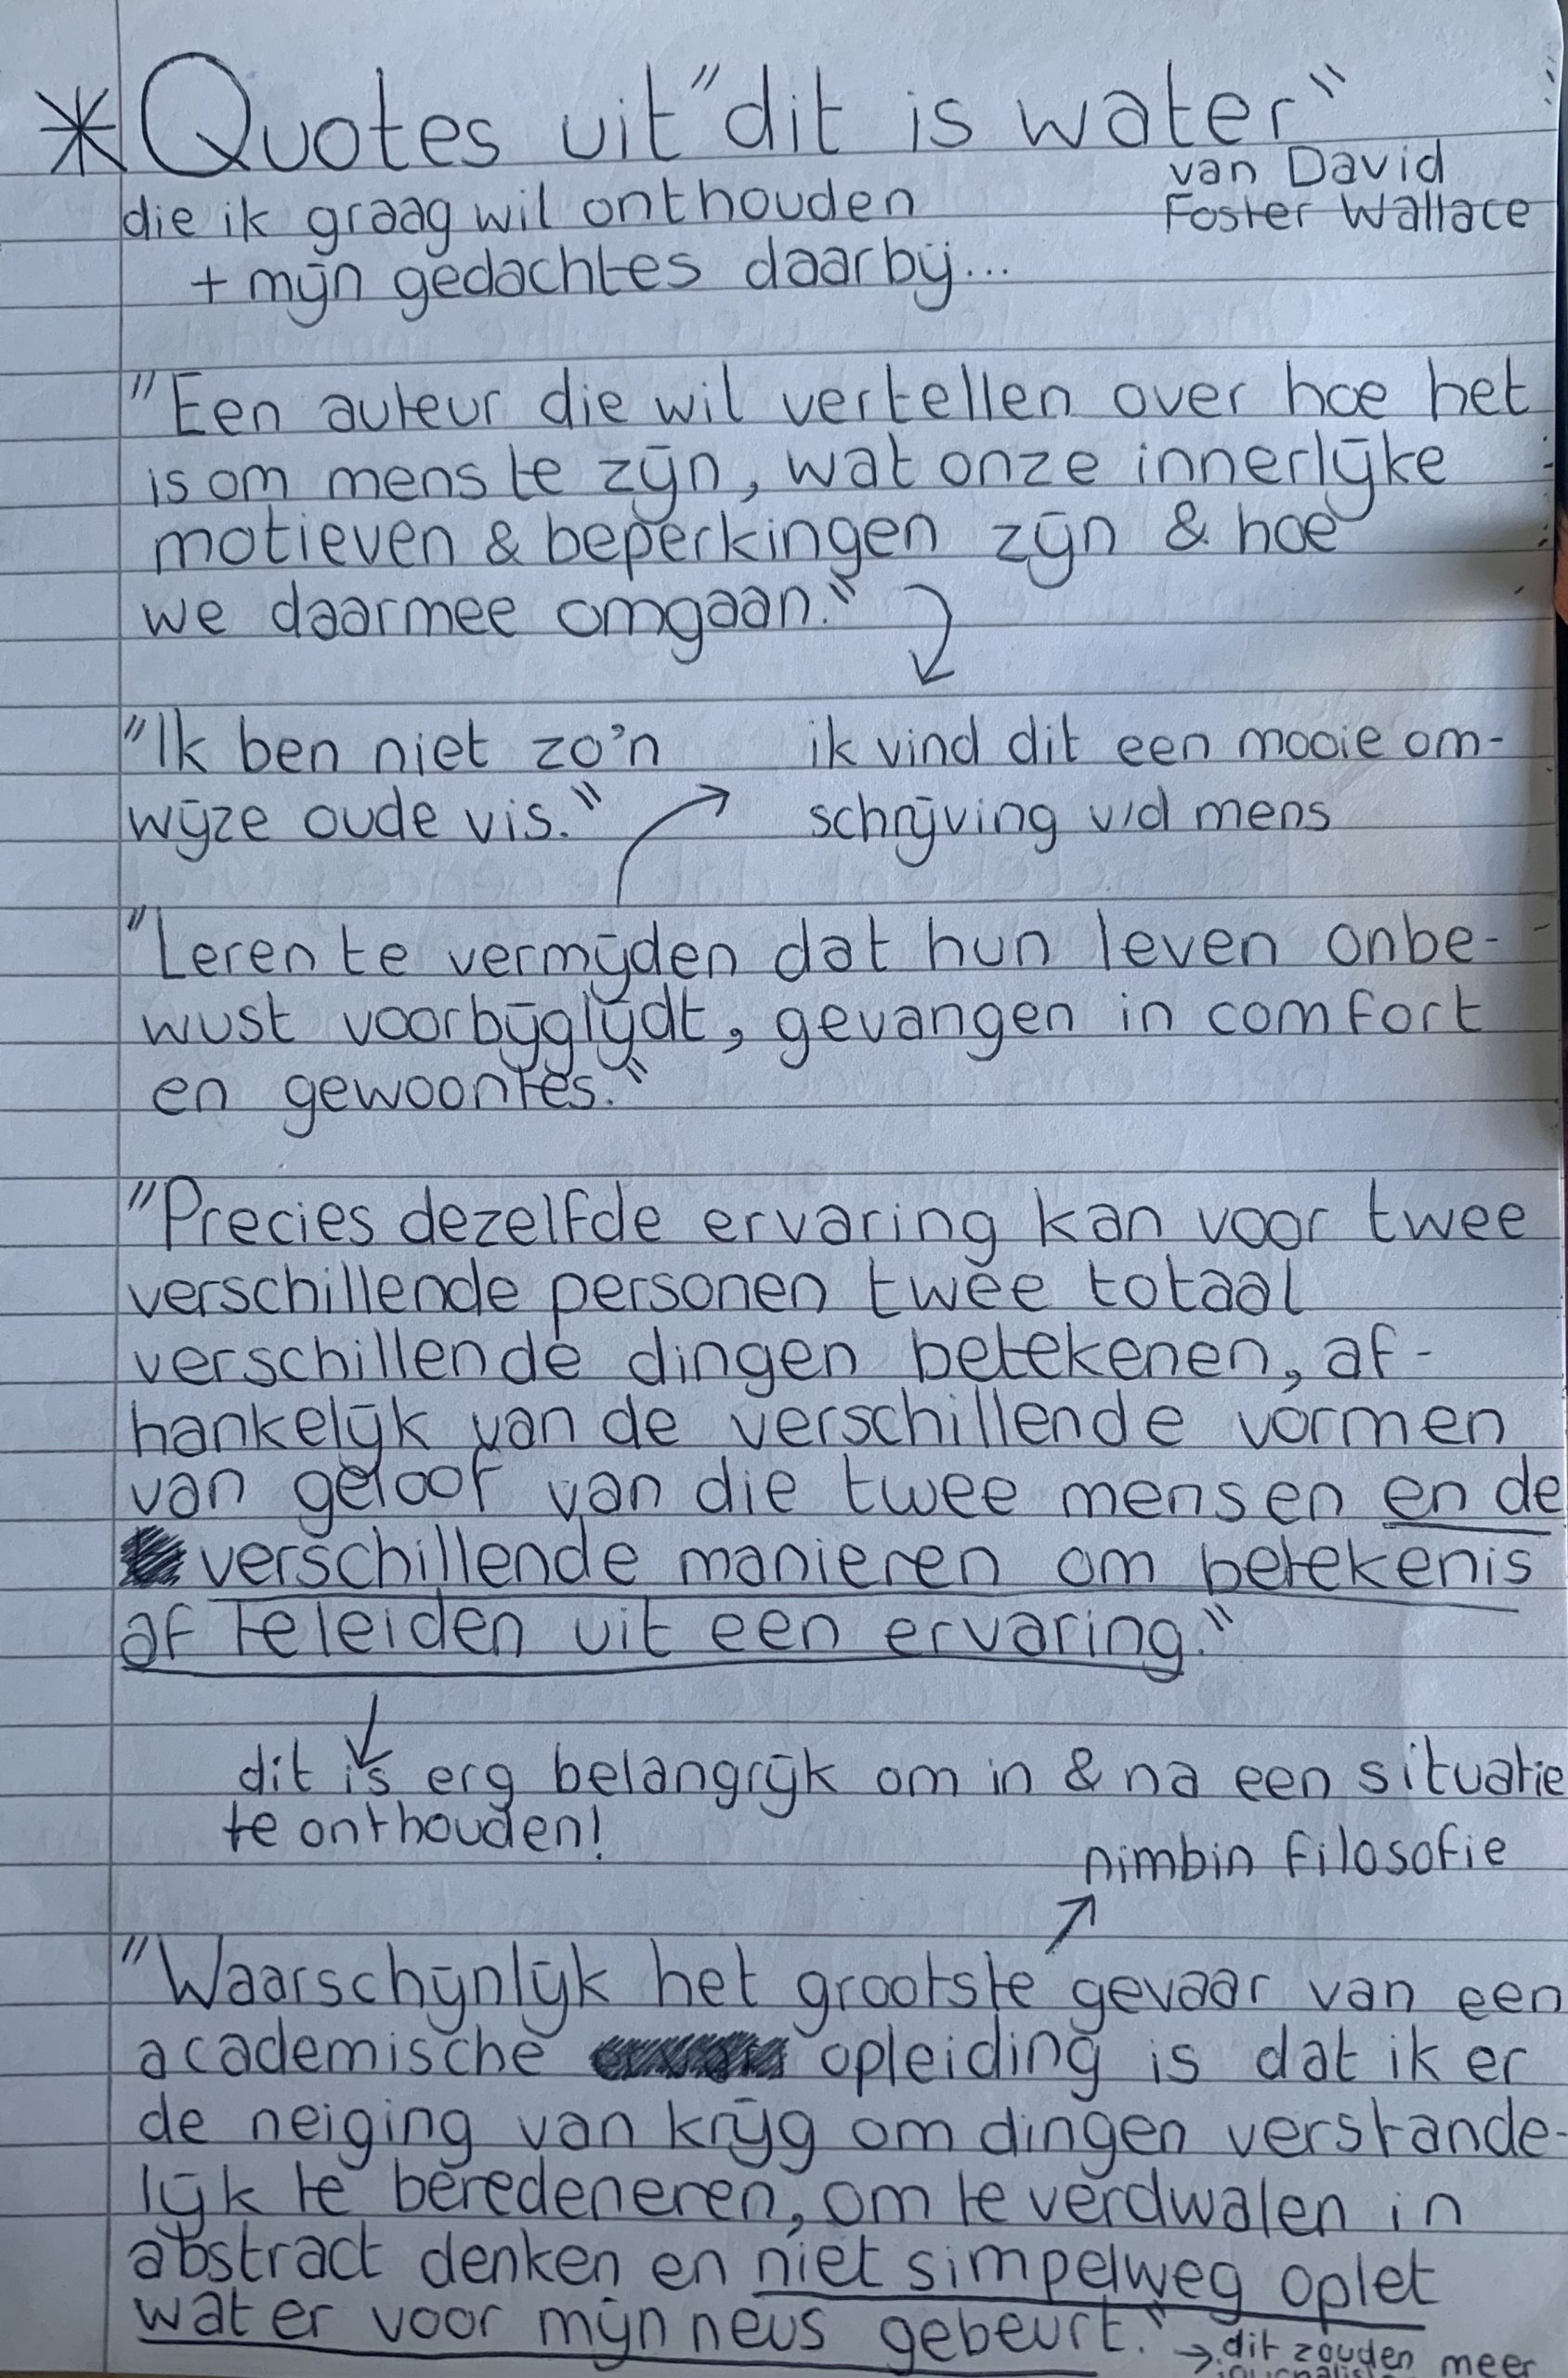 * Quotes uit "dit is water"
van David
Foster Wallace
die ik graag wil onthouden
+ mijn gedachtes daarbij...
"Een auteur die wil vertellen over hoe het
is om mens te zijn, wat onze innerlijke
motieven & beperkingen zijn & hoe
we daarmee omgaan."
"Ik ben niet zo'n
wijze oude vis."
ik vind dit een mooie om-
schrijving v/d mens
"Leren te vermijden dat hun leven onbe-
wust voorbijglijdt, gevangen in comfort
en gewoontes."
"Precies dezelfde ervaring kan voor twee
verschillende personen twee totaal
verschillende dingen betekenen, af-
hankelijk van de verschillende vormen
van geloof van die twee mensen en de
verschillende manieren om betekenis
af te leiden uit een ervaring."
dit is erg belangrijk om in & na een situatie
te onthouden!
nimbin filosofie
"Waarschijnlijk het grootste gevaar van een
academische opleiding is dat ik er
de neiging van krijg om dingen verstande-
lijk te beredeneren, om te verdwalen in
abstract denken en niet simpelweg oplet
wat er voor mijn neus gebeurt."
→ dit zouden meer